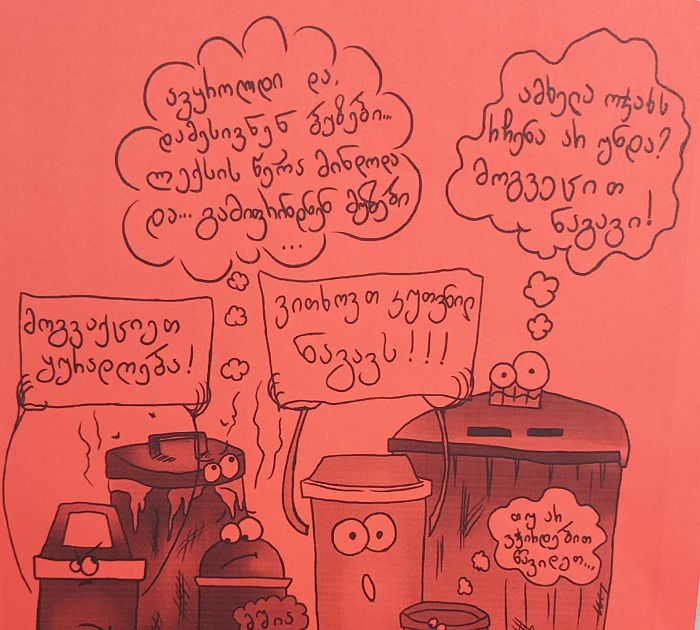 ავყროლდი და,
დამესივნენ ბუზები...
ლექსის წერა მინდოდა
და... გამიფრინდნენ მუზები
...
ამხელა ოჯახს
რჩენა არ უნდა?
მოგვეცით
ნაგავი!
მოგვაქციეთ
ყურადღება!
ვითხოვთ კუთვნილ
ნაგავს!!!
თუ არ
ვჭირდებით
წავიდეთ...
მშია